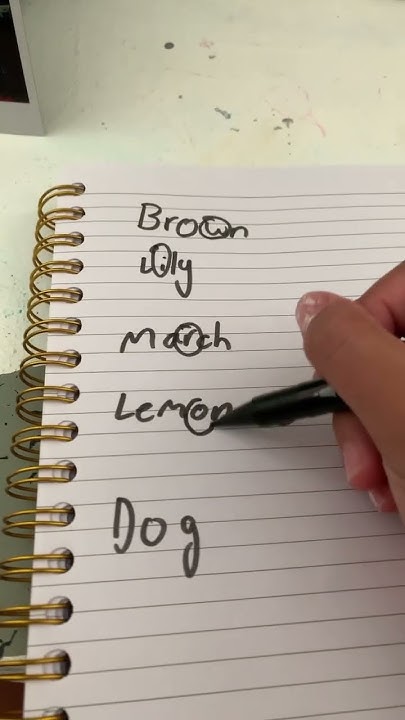 Brown
Lily
March
Lemon
Dog